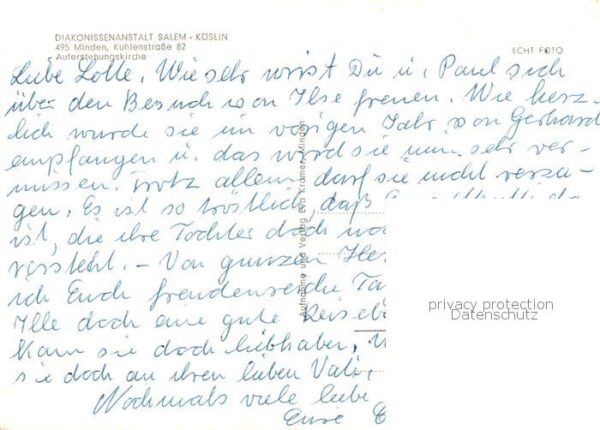 DIAKONISSENANSTALT SALEM - KÖSLIN
495 Minden, Kuhlenstraße 82
Auferstehungskirche
ECHT FOTO
Liebe Lotte, Wie sehr wirst Du u. Paul sich
über den Besuch von Ilse freuen. Wie herz-
lich wurde sie im vorigen Jahr von Gerhard
empfangen u. das wird sie nun sehr ver-
missen. Trotz allem darf sie nicht verza-
gen. Es ist so tröstlich, daß
ist, die ihre Tochter doch
versteht. - Von ganzem
ich Euch freudenreiche
Ilse doch eine gute
Kann sie doch liebhaben,
sie doch an ihren lieben Vati,
Nochmals viele liebe
Eure
Aufnahme und Verlag Eva Kramer, Minden
privacy protection
Datenschutz